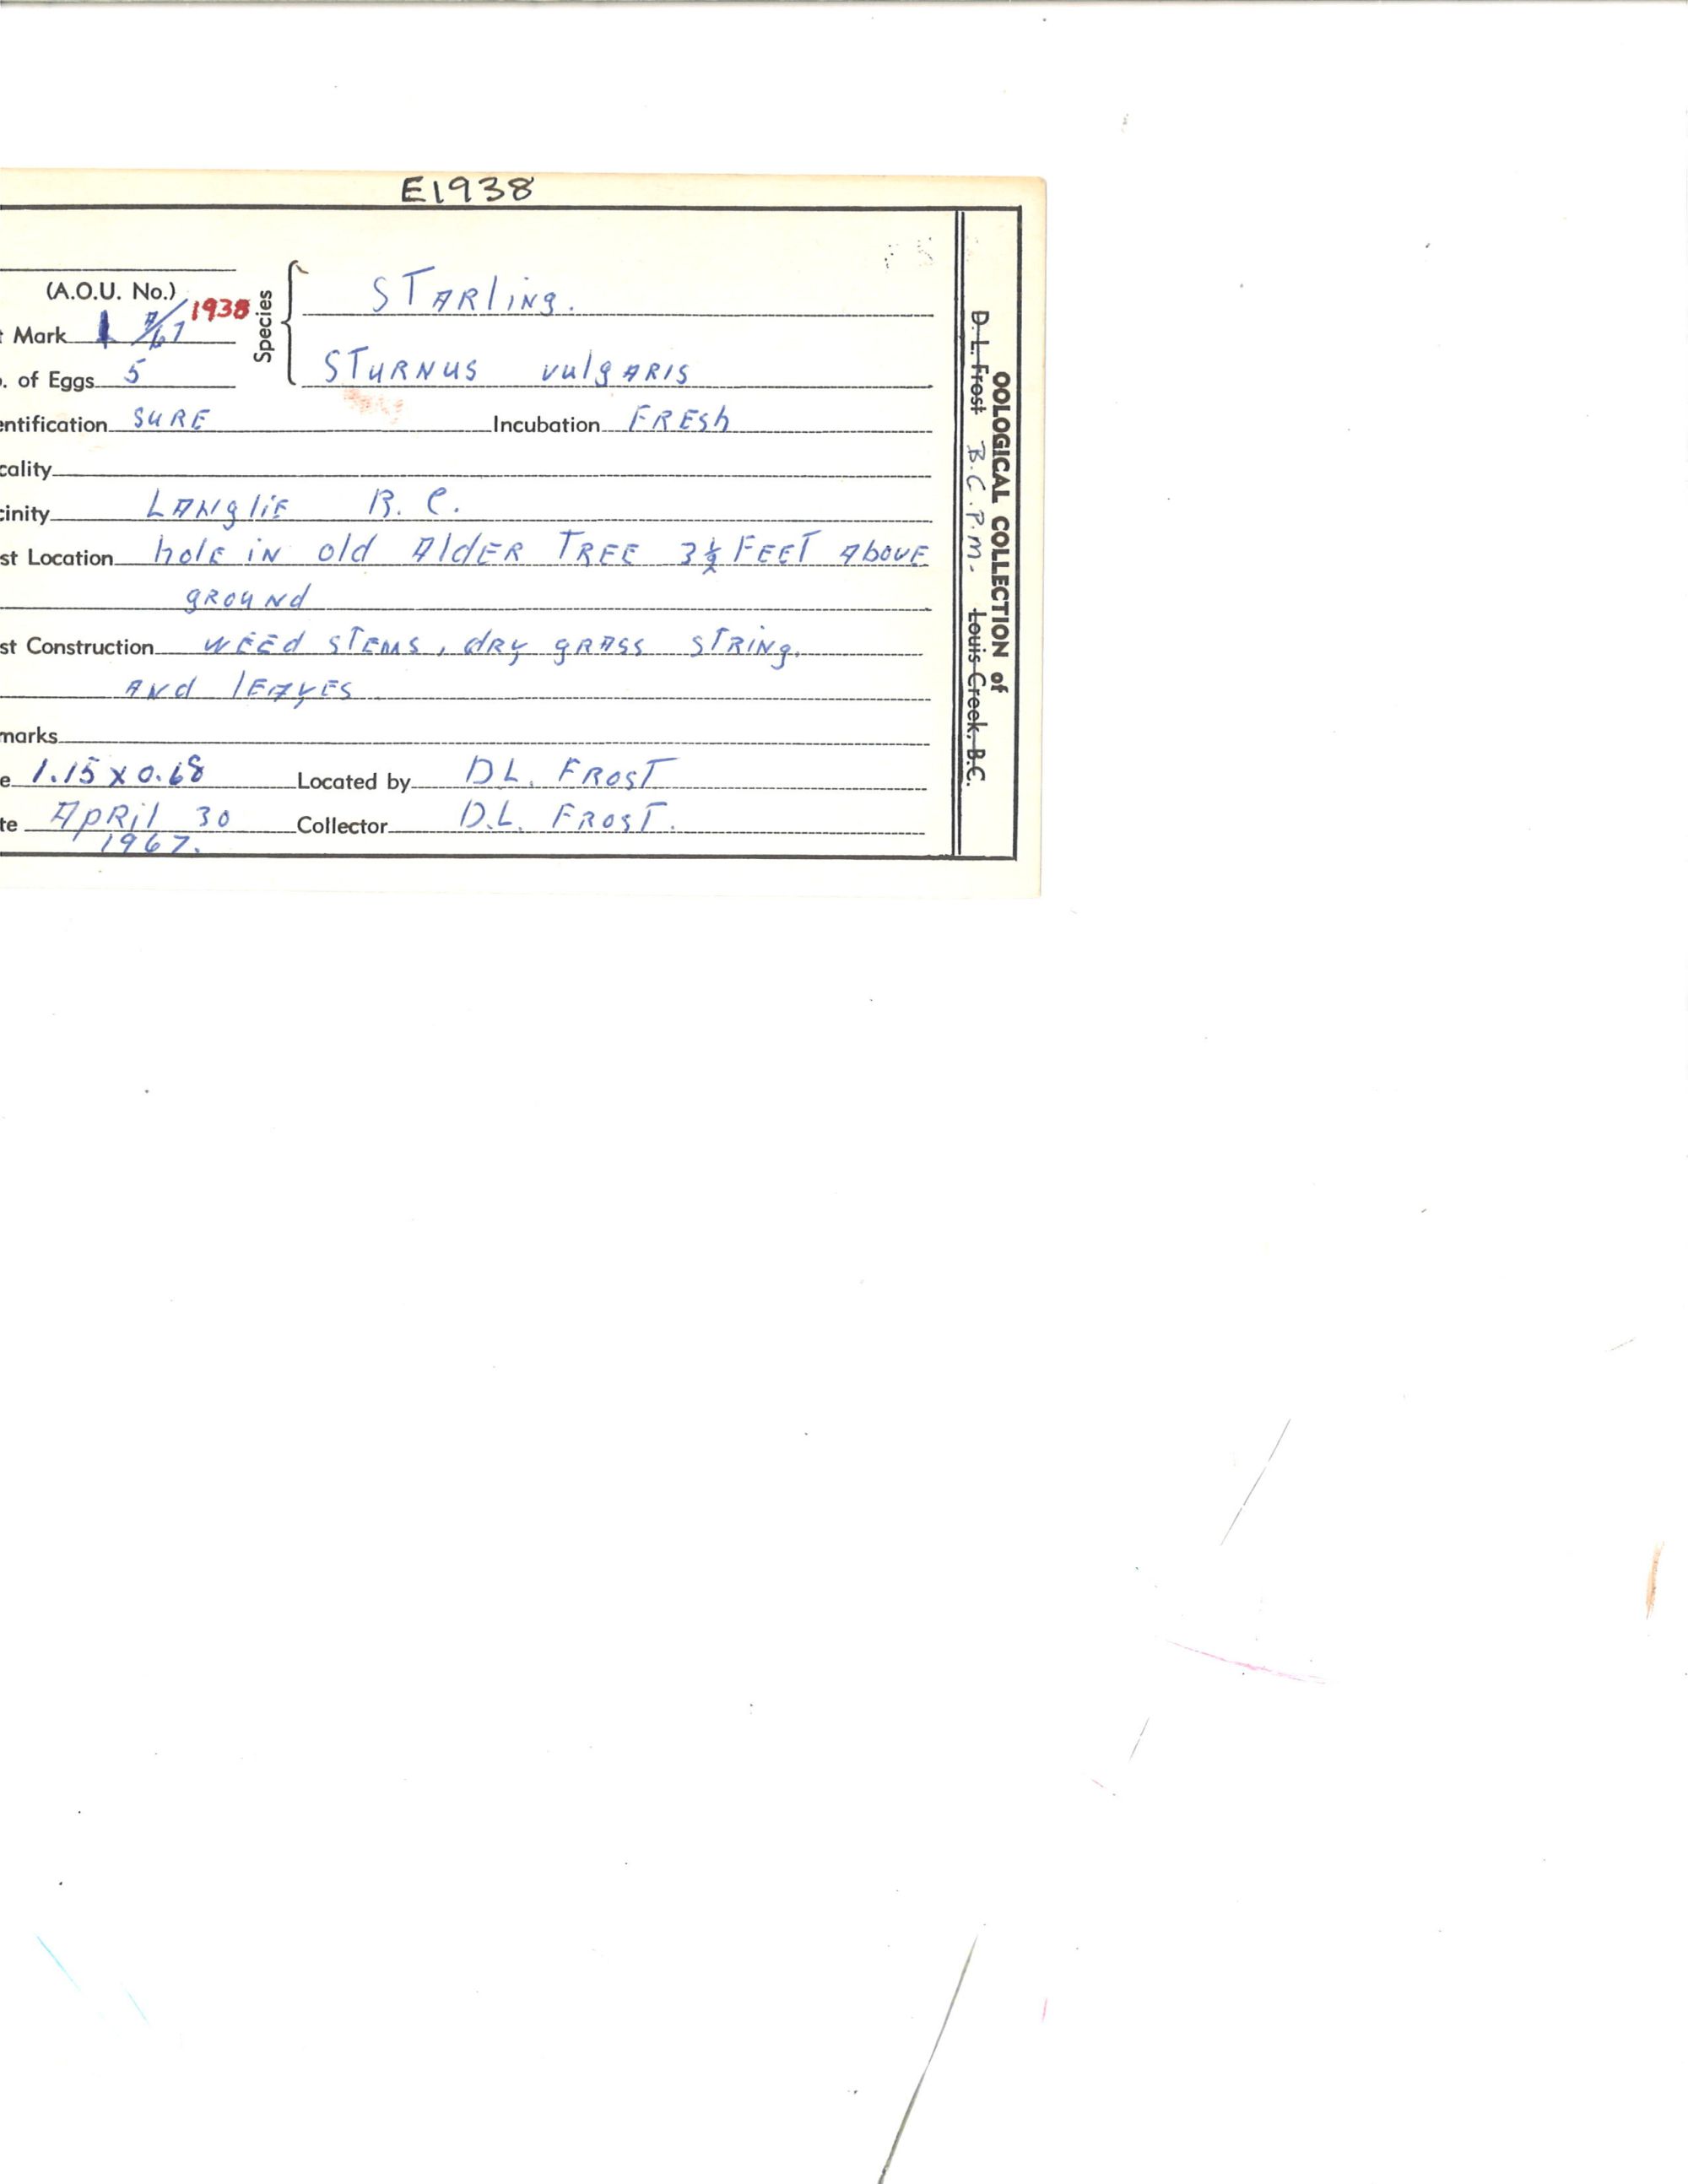 E1938
(A.O.U. No.)
Mark 1 /67 1938
Species
STARling.
STURNUS vulgARIS
. of Eggs 5
entification SURE Incubation FRESh
cality
cinity LANgliE B.C.
st Location holE iN old AldER TREE 3½ FEET AbovE
gROUNd
st Construction WEEd STEMS, dRy gRASS STRiNg.
ANd lEAVES
marks
e 1.15 x 0.68 Located by D L. FROST
te APRil 30 Collector D.L. FROST.
1967.
OOLOGICAL COLLECTION of
D. L. Frost B.C.P.M. Louis Creek, B.C.